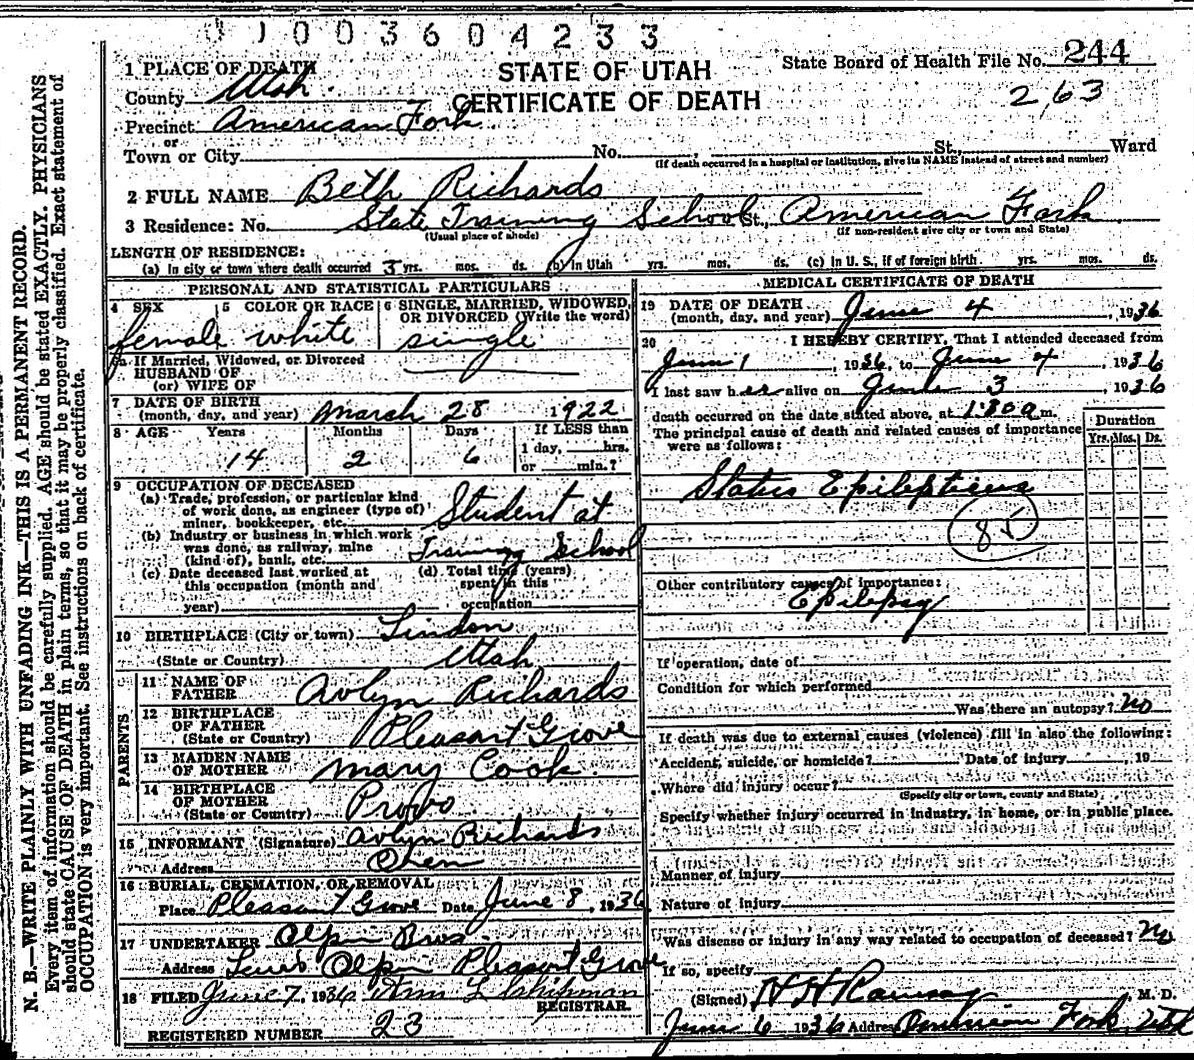 01003604233
STATE OF UTAH
CERTIFICATE OF DEATH
State Board of Health File No. 244
263
1 PLACE OF DEATH
County Utah
Precinct American Fork
or
Town or City No. , St., Ward
(If death occurred in a hospital or institution, give its NAME instead of street and number)
2 FULL NAME Beth Richards
3 Residence: No. State Training School St., American Fork
(Usual place of abode) (If non-resident give city or town and State)
LENGTH OF RESIDENCE:
(a) In city or town where death occurred 3 yrs. mos. ds. (b) In Utah yrs. mos. ds. (c) In U. S., if of foreign birth. yrs. mos. ds.
PERSONAL AND STATISTICAL PARTICULARS
4 SEX female
5 COLOR OR RACE white
6 SINGLE, MARRIED, WIDOWED, OR DIVORCED (Write the word) single
6a If Married, Widowed, or Divorced
HUSBAND OF
(or) WIFE OF
7 DATE OF BIRTH
(month, day, and year) March 28 1922
8 AGE Years Months Days If LESS than
14 2 6 1 day, hrs.
or min.?
9 OCCUPATION OF DECEASED
(a) Trade, profession, or particular kind
of work done, as engineer (type of)
miner, bookkeeper, etc. Student at
(b) Industry or business in which work
was done, as railway, mine
(kind of), bank, etc. Training School
(c) Date deceased last worked at
this occupation (month and
year)
(d) Total time (years)
spent in this
occupation
10 BIRTHPLACE (City or town) Lindon
(State or Country) Utah
PARENTS
11 NAME OF
FATHER Avlyn Richards
12 BIRTHPLACE
OF FATHER
(State or Country) Pleasant Grove
13 MAIDEN NAME
OF MOTHER Mary Cook
14 BIRTHPLACE
OF MOTHER
(State or Country) Provo
15 INFORMANT (Signature) Avlyn Richards
Address Orem
16 BURIAL, CREMATION, OR REMOVAL
Place Pleasant Grove Date June 8, 1936
17 UNDERTAKER Olpin Bros.
Address Olpin Pleasant Grove
18 FILED June 7, 1936
REGISTRAR.
REGISTERED NUMBER 23
MEDICAL CERTIFICATE OF DEATH
19 DATE OF DEATH
(month, day, and year) June 4, 1936
20 I HEREBY CERTIFY, That I attended deceased from
June 1, 1936, to June 4, 1936
I last saw her alive on June 3 1936
death occurred on the date stated above, at 1:30 a m.
The principal cause of death and related causes of importance
were as follows:
Duration
Yrs. Mos. Ds.
Status Epilepticus
85
Other contributory causes of importance:
Epilepsy
If operation, date of
Condition for which performed
Was there an autopsy? no
If death was due to external causes (violence) fill in also the following:
Accident, suicide, or homicide? Date of injury , 19
Where did injury occur?
(Specify city or town, county and State)
Specify whether injury occurred in industry, in home, or in public place.
Manner of injury
Nature of injury
Was disease or injury in any way related to occupation of deceased? no
If so, specify
(Signed) H H Ramsay M. D.
June 6 1936 Address American Fork, Utah
N. B.—WRITE PLAINLY WITH UNFADING INK—THIS IS A PERMANENT RECORD.
Every item of information should be carefully supplied. AGE should be stated EXACTLY. PHYSICIANS
should state CAUSE OF DEATH in plain terms, so that it may be properly classified. Exact statement of
OCCUPATION is very important. See instructions on back of certificate.